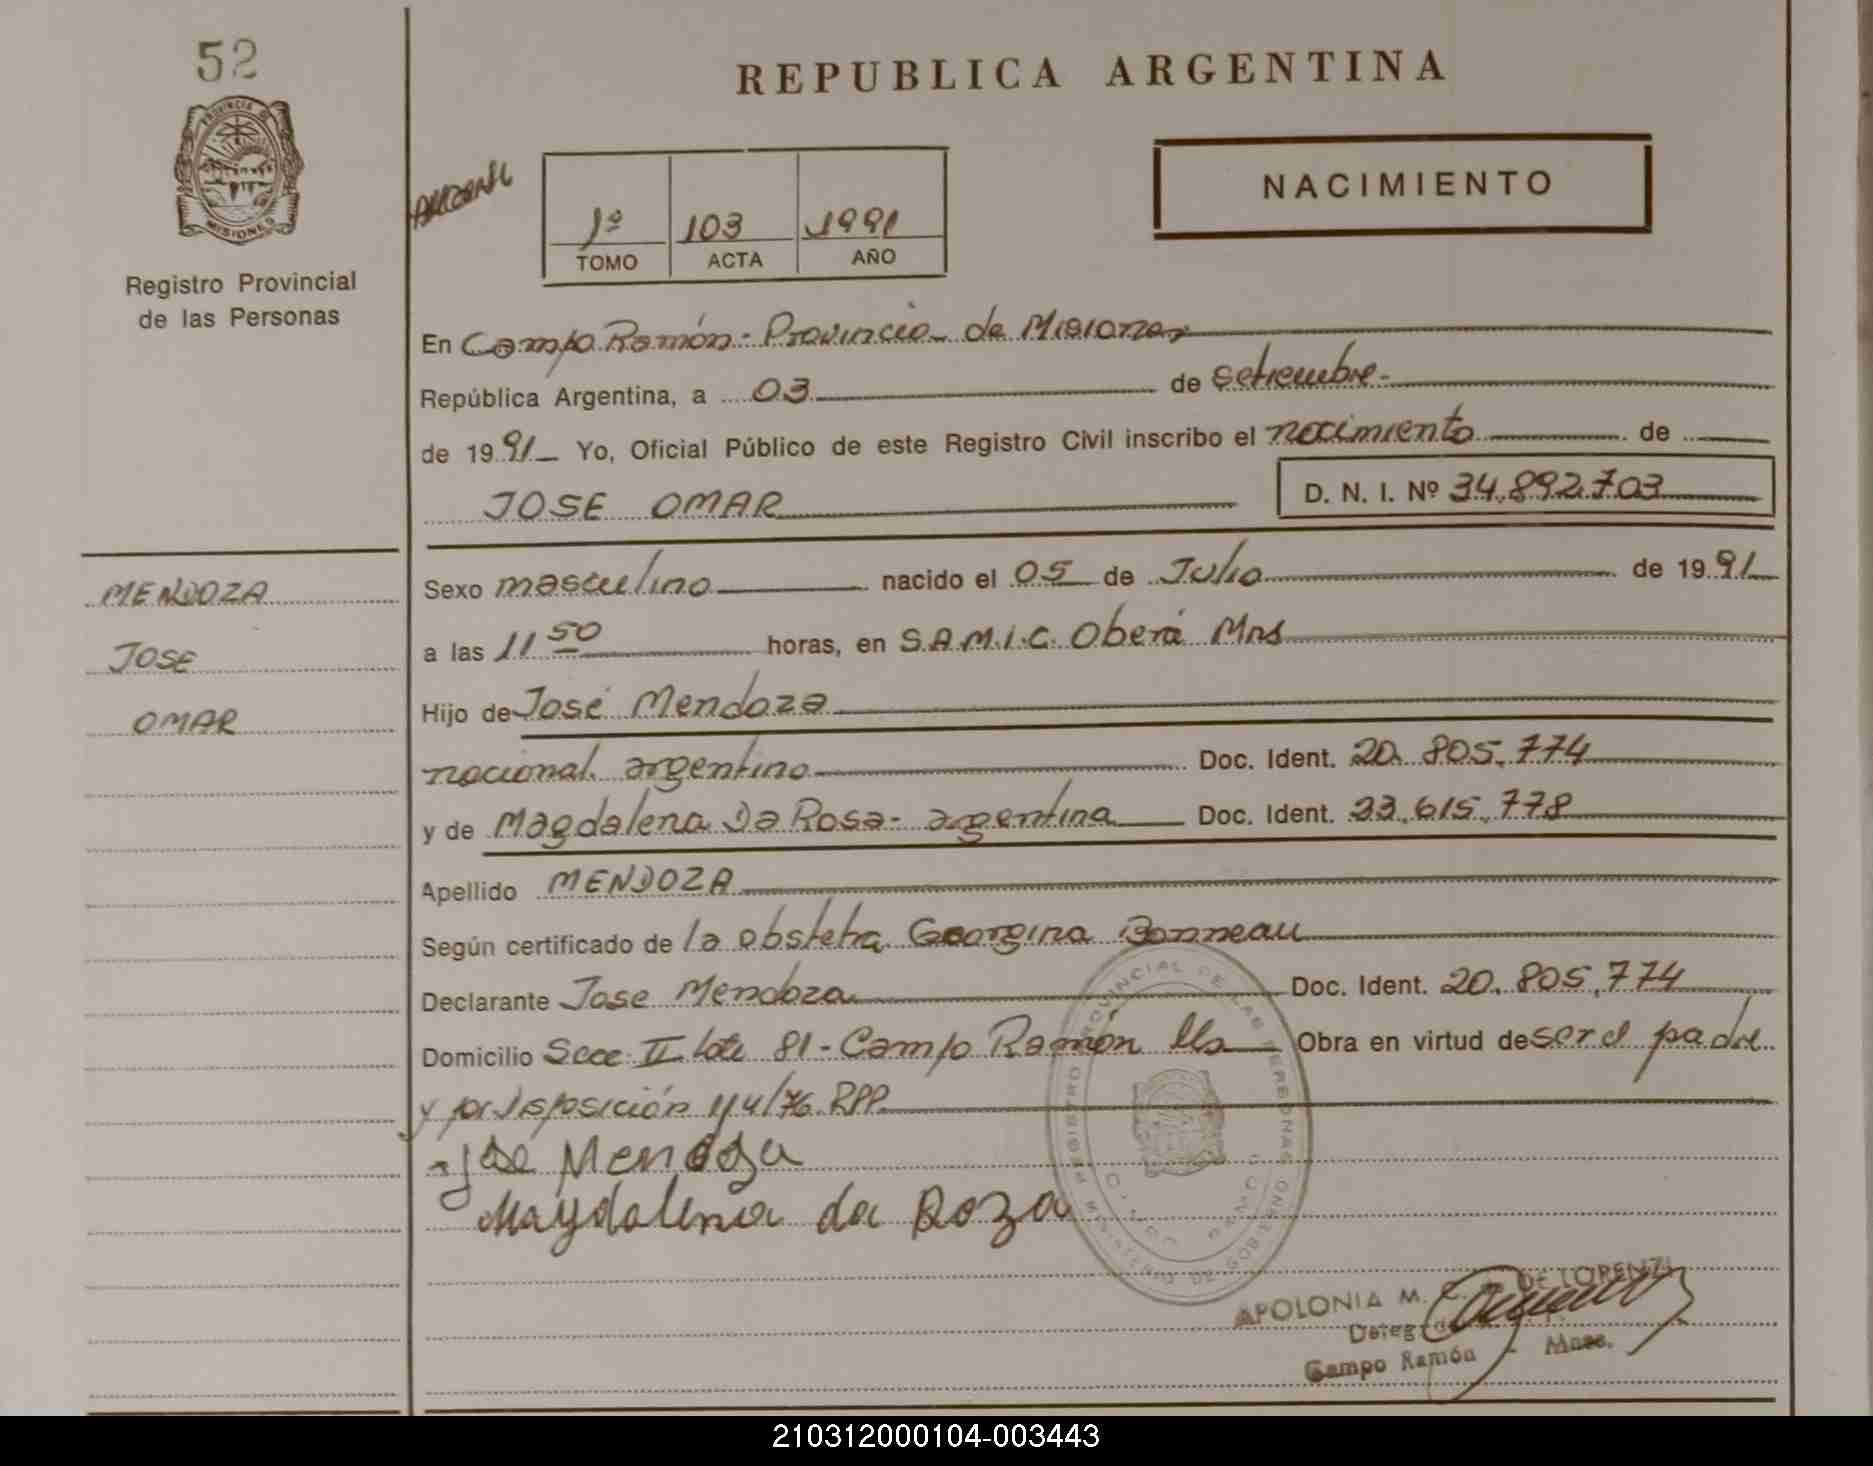 52
PROVINCIA
MISIONES
Registro Provincial
de las Personas
MENDOZA
JOSE
OMAR
REPUBLICA ARGENTINA
NACIMIENTO
1º 103 1991
TOMO ACTA AÑO
En Campo Ramón - Provincia de Misiones
República Argentina, a 03 de setiembre -
de 1991 Yo, Oficial Público de este Registro Civil inscribo el nacimiento de
JOSE OMAR D. N. I. Nº 34.892.703
Sexo masculino nacido el 05 de Julio de 1991
a las 11 50 horas, en S.A.M.I.C. Oberá Mns
Hijo de José Mendoza
nacional. argentino Doc. Ident. 20.805.774
y de Magdalena Da Rosa - argentina Doc. Ident. 23.615.778
Apellido MENDOZA
Según certificado de la obstetra Georgina Bonneau
Declarante Jose Mendoza Doc. Ident. 20.805.774
Domicilio Secc. II lote 81 - Campo Ramón Obra en virtud de ser el padre
y por disposición 114/76 RPP
Jose Mendoza
Magdalena da Roza
REGISTRO PROVINCIAL DE LAS PERSONAS
MINISTERIO DE GOBIERNO
APOLONIA M. C. DE LORENZI
Campo Ramón - Mnes.
210312000104-003443